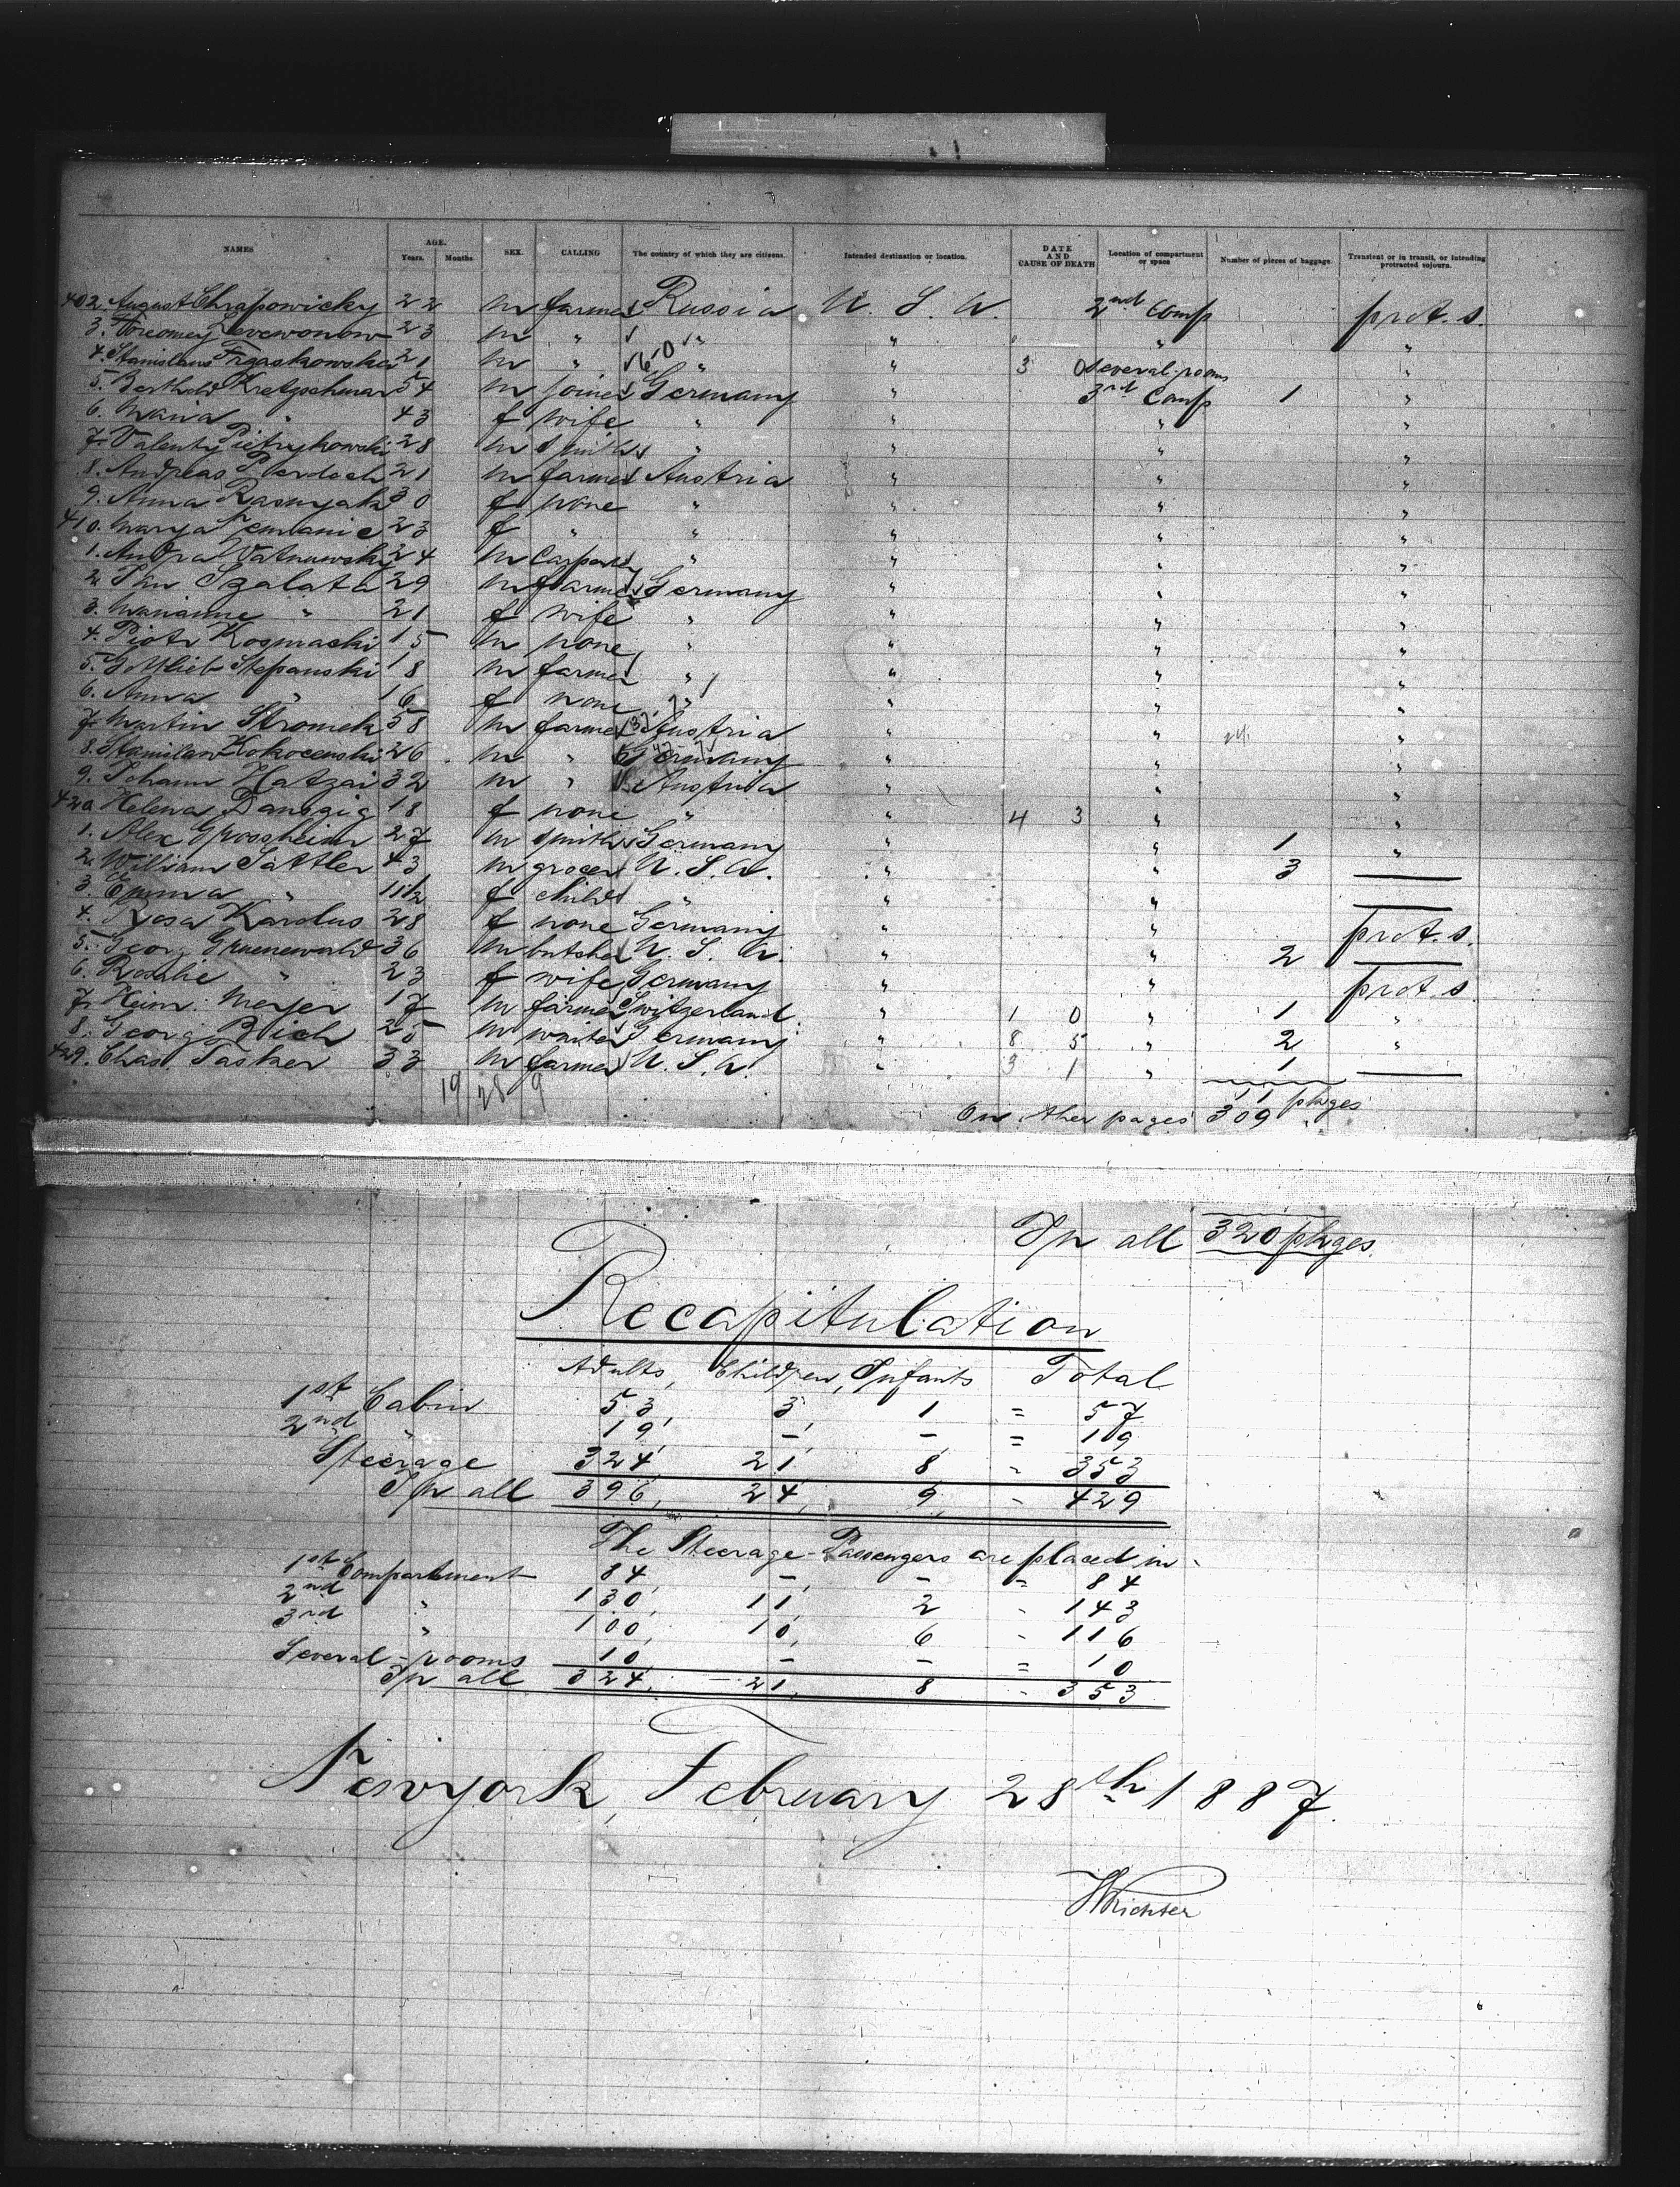 NAMES AGE. Years. Months. SEX. CALLING The country of which they are citizens. Intended destination or location. DATE AND CAUSE OF DEATH Location of compartment or space Number of pieces of baggage Transient or in transit, or intending protracted sojourn.
402. August Chrapowicky 22 m farmer Russia U. S. A. 2nd Comp prot. s.
3. 23 m " " " " "
4. Stanislaus 21 m " 60 " " 3 0 Several-rooms "
5. Berthold Kretzschmar 54 m joiner Germany " 3rd Comp 1 "
6. Maria " 43 f wife " " " "
7. Valenty Pietrykowski 28 m smith " " " "
8. Andreas 21 m farmer Austria " " "
9. Anna 30 f none " " " "
410. Marya 23 f " " " " "
1. 24 m " " " "
2. Jan Szalata 29 m farmer Germany " " "
3. Marianne " 21 f wife " " " "
4. Piotr Kosmachi 15 m none " " " "
5. Gottlieb Stepanski 18 m farmer " " " "
6. Anna " 16 f none " " " "
7. Martin Stromek 58 m farmer Austria " " "
8. Stanislaw Kokocenski 26 m " Germany " " "
9. Johann Hatzai 32 m " Austria " " "
420. Helena Danszig 18 f none " " 4 3 " "
1. Alex Grossheim 27 m smith Germany " " 1 "
2. William Sattler 43 m grocer U. S. A. " " 3 —
3. Emma " 11½ f child " " " —
4. Rosa Karolus 28 f none Germany " " prot. s.
5. Georg Gruenewald 36 m butcher U. S. A. " " 2 —
6. Rosalie " 23 f wife Germany " " prot. s.
7. Heinr. Meyer 17 m farmer Switzerland " 1 0 " 1 "
8. Georg Buch 25 m waiter Germany " 8 5 " 2 "
429. Chas. Tasker 33 m farmer U. S. A. " 3 1 " 1 —
19 28 9
11 pkges
On ther pages 309
In all 320 pkges.
Recapitulation
Adults, Children, Infants Total
1st Cabin 53, 3, 1 = 57
2nd " 19, –, – = 19
Steerage 324, 21, 8 - 353
In all 396, 24, 9, - 429
The Steerage-Passengers are placed in -
1st Compartment 84, –, – = 84
2nd " 130, 11, 2 - 143
3rd " 100, 10, 6 - 116
Several-rooms 10, – – = 10
In all 324, – 21, 8 - 353
Newyork, February 28th 1887.
WRichter